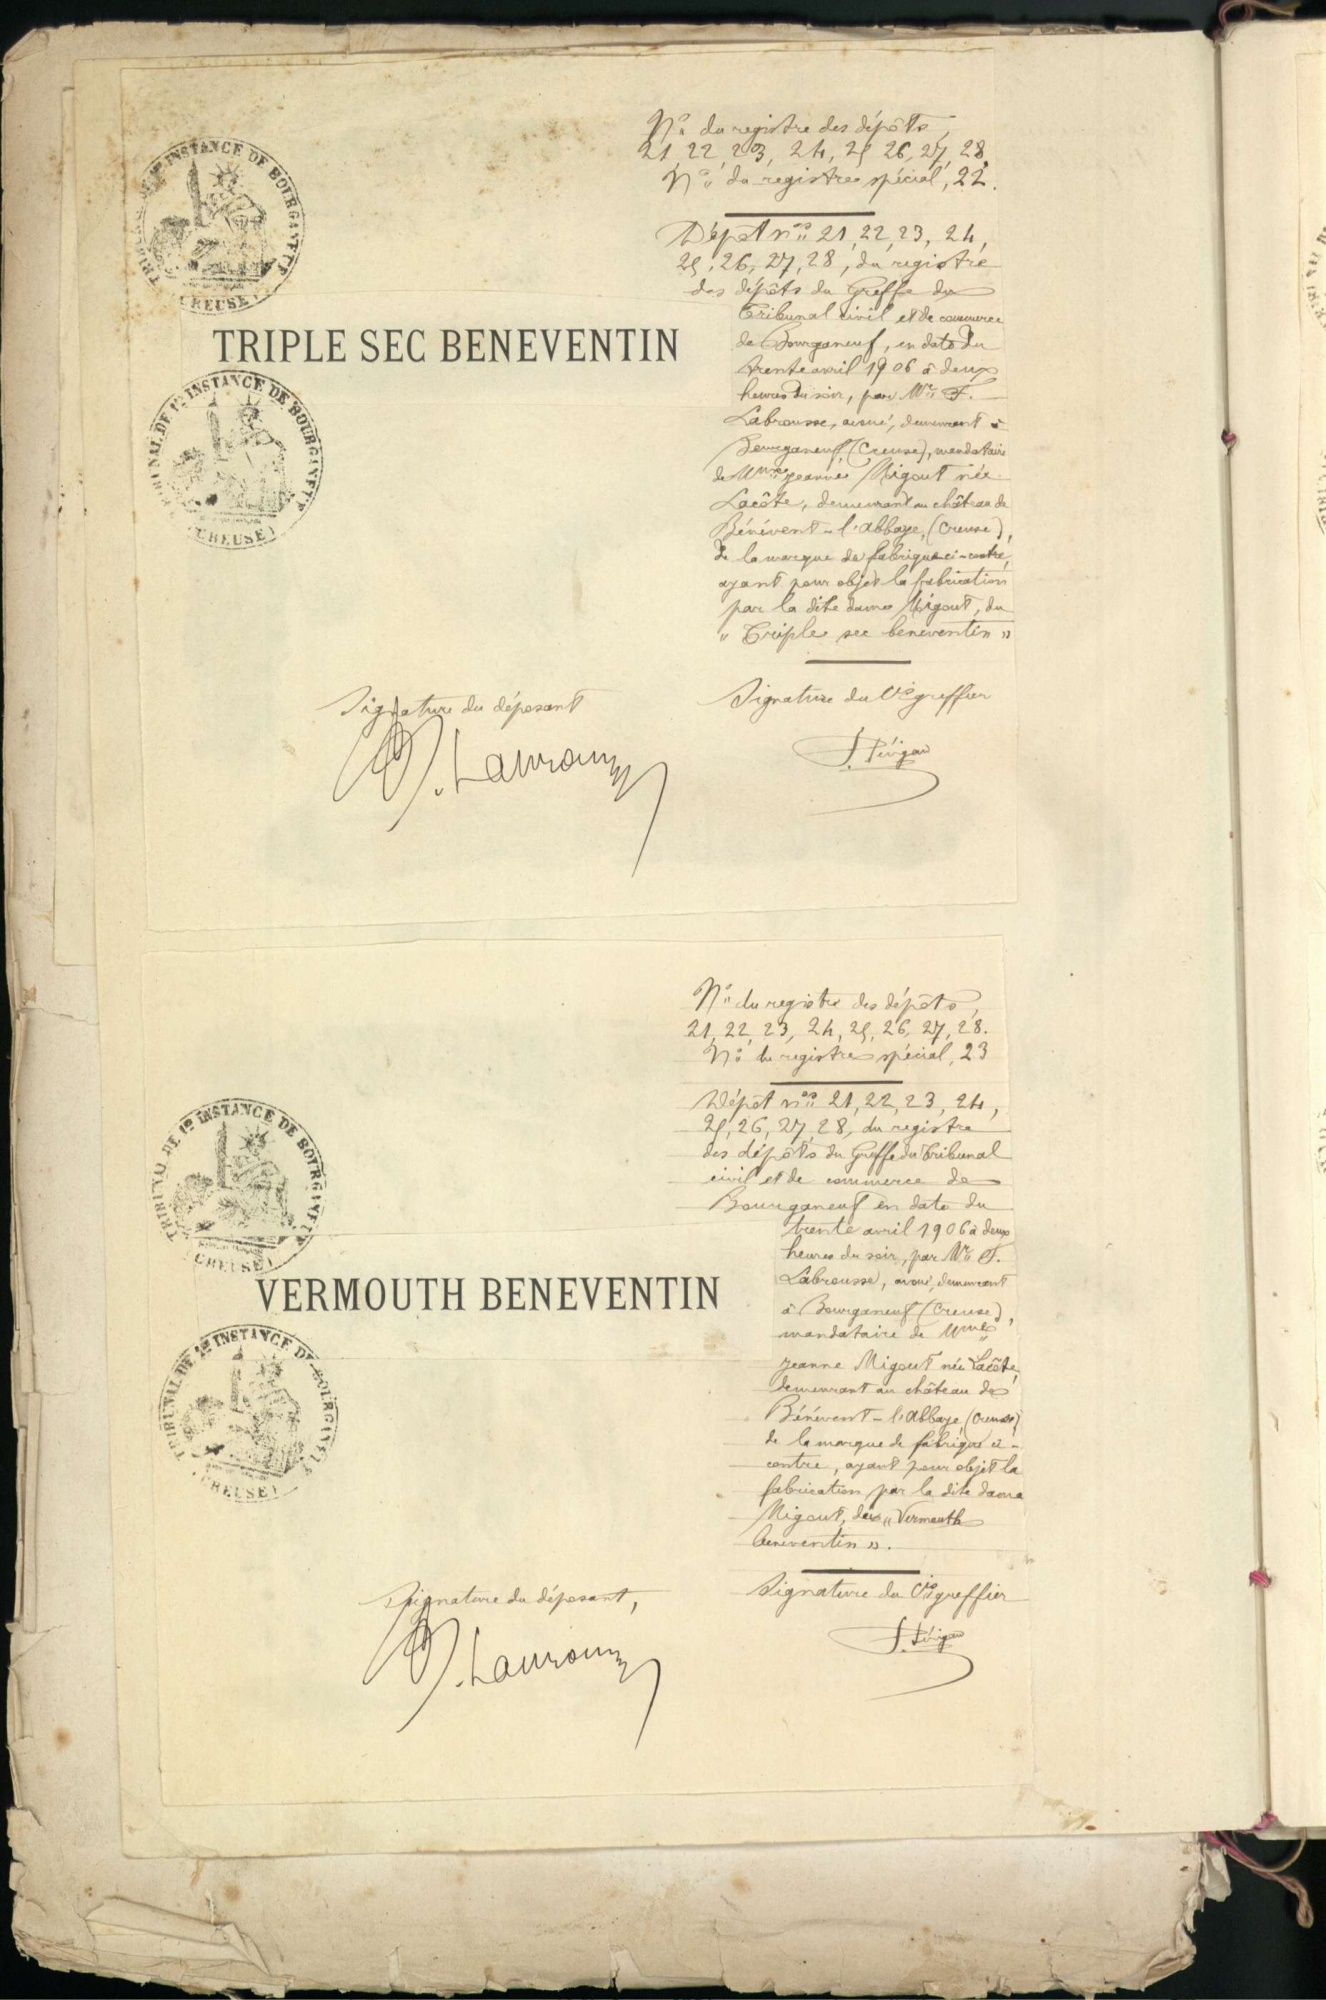 Nº du registre des dépôts,
21, 22, 23, 24, 25, 26, 27, 28.
Nº du registre spécial, 22.
TRIBUNAL DE 1re INSTANCE DE BOURGANEUF
(CREUSE)
TRIPLE SEC BENEVENTIN
TRIBUNAL DE 1re INSTANCE DE BOURGANEUF
(CREUSE)
Dépôt nos 21, 22, 23, 24,
25, 26, 27, 28, du registre
des dépôts du Greffe du
Tribunal civil et de commerce
de Bourganeuf, en date du
trente avril 1906 à deux
heures du soir, par Me F.
Labrousse, avoué, demeurant à
Bourganeuf, (Creuse), mandataire
de Mme Jeanne Migout née
Lacôte, demeurant au château de
Bénévent-l'Abbaye, (Creuse),
de la marque de fabrique ci-contre,
ayant pour objet la fabrication
par la dite dame Migout, du
" Triple sec beneventin "
Signature du déposant
Signature du Cis greffier
F. Labrousse
TRIBUNAL DE 1re INSTANCE DE BOURGANEUF
(CREUSE)
VERMOUTH BENEVENTIN
TRIBUNAL DE 1re INSTANCE DE BOURGANEUF
(CREUSE)
Nº du registre des dépôts,
21, 22, 23, 24, 25, 26, 27, 28.
Nº du registre spécial, 23
Dépôt nos 21, 22, 23, 24,
25, 26, 27, 28, du registre
des dépôts du Greffe du Tribunal
civil et de commerce de
Bourganeuf en date du
trente avril 1906 à deux
heures du soir, par Me F.
Labrousse, avoué, demeurant
à Bourganeuf (Creuse),
mandataire de Mme
Jeanne Migout née Lacôte,
demeurant au château de
Bénévent-l'Abbaye, (Creuse)
de la marque de fabrique ci-
contre, ayant pour objet la
fabrication par la dite dame
Migout, du " Vermouth
beneventin ".
Signature du déposant,
Signature du Cis greffier
F. Labrousse